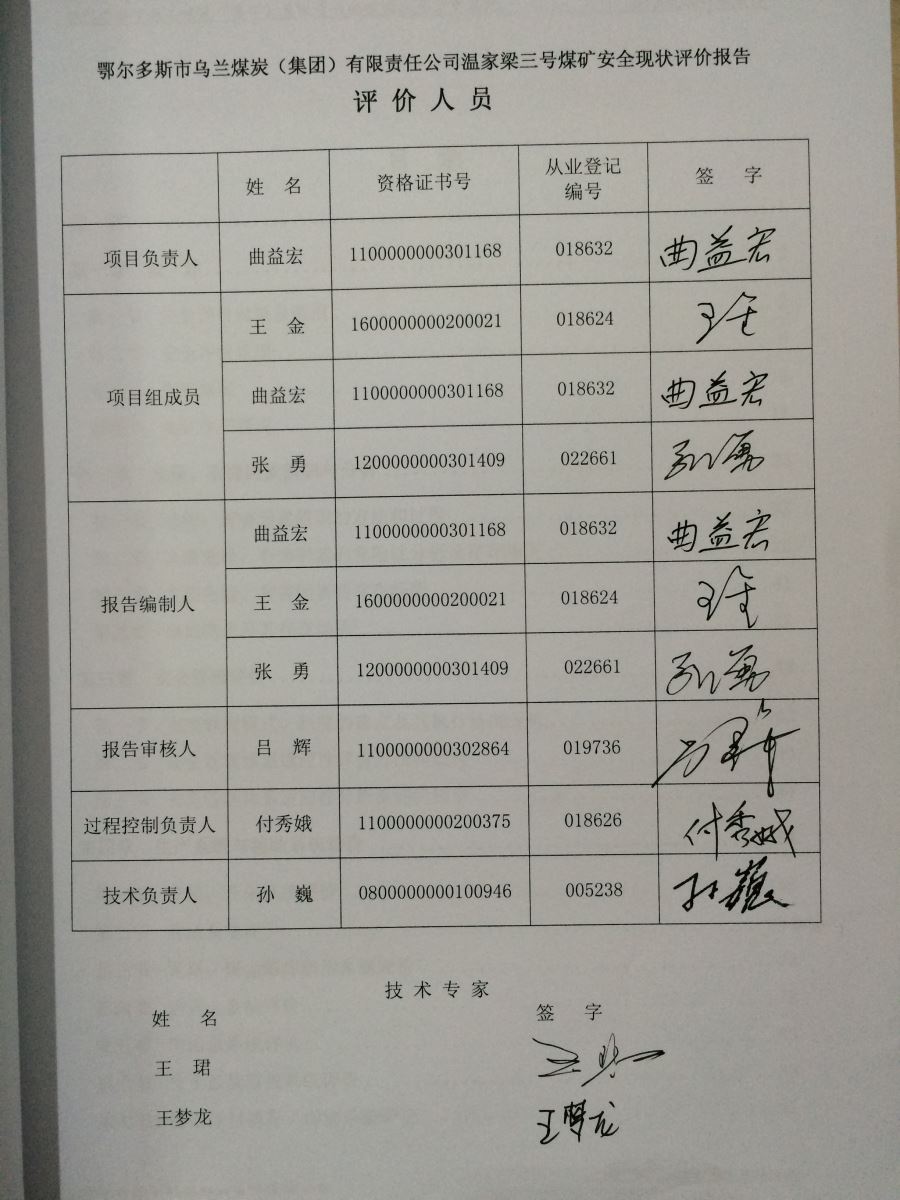 鄂尔多斯市乌兰煤炭（集团）有限责任公司温家梁三号煤矿安全现状评价报告
评价人员
姓 名 资格证书号 从业登记编号 签 字
项目负责人 曲益宏 1100000000301168 018632 曲益宏
项目组成员 王 金 1600000000200021 018624 王金
曲益宏 1100000000301168 018632 曲益宏
张 勇 1200000000301409 022661 张勇
报告编制人 曲益宏 1100000000301168 018632 曲益宏
王 金 1600000000200021 018624 王金
张 勇 1200000000301409 022661 张勇
报告审核人 吕 辉 1100000000302864 019736 吕辉
过程控制负责人 付秀娥 1100000000200375 018626 付秀娥
技术负责人 孙 巍 0800000000100946 005238 孙巍
技术专家
姓 名 签 字
王 珺 王珺
王梦龙 王梦龙